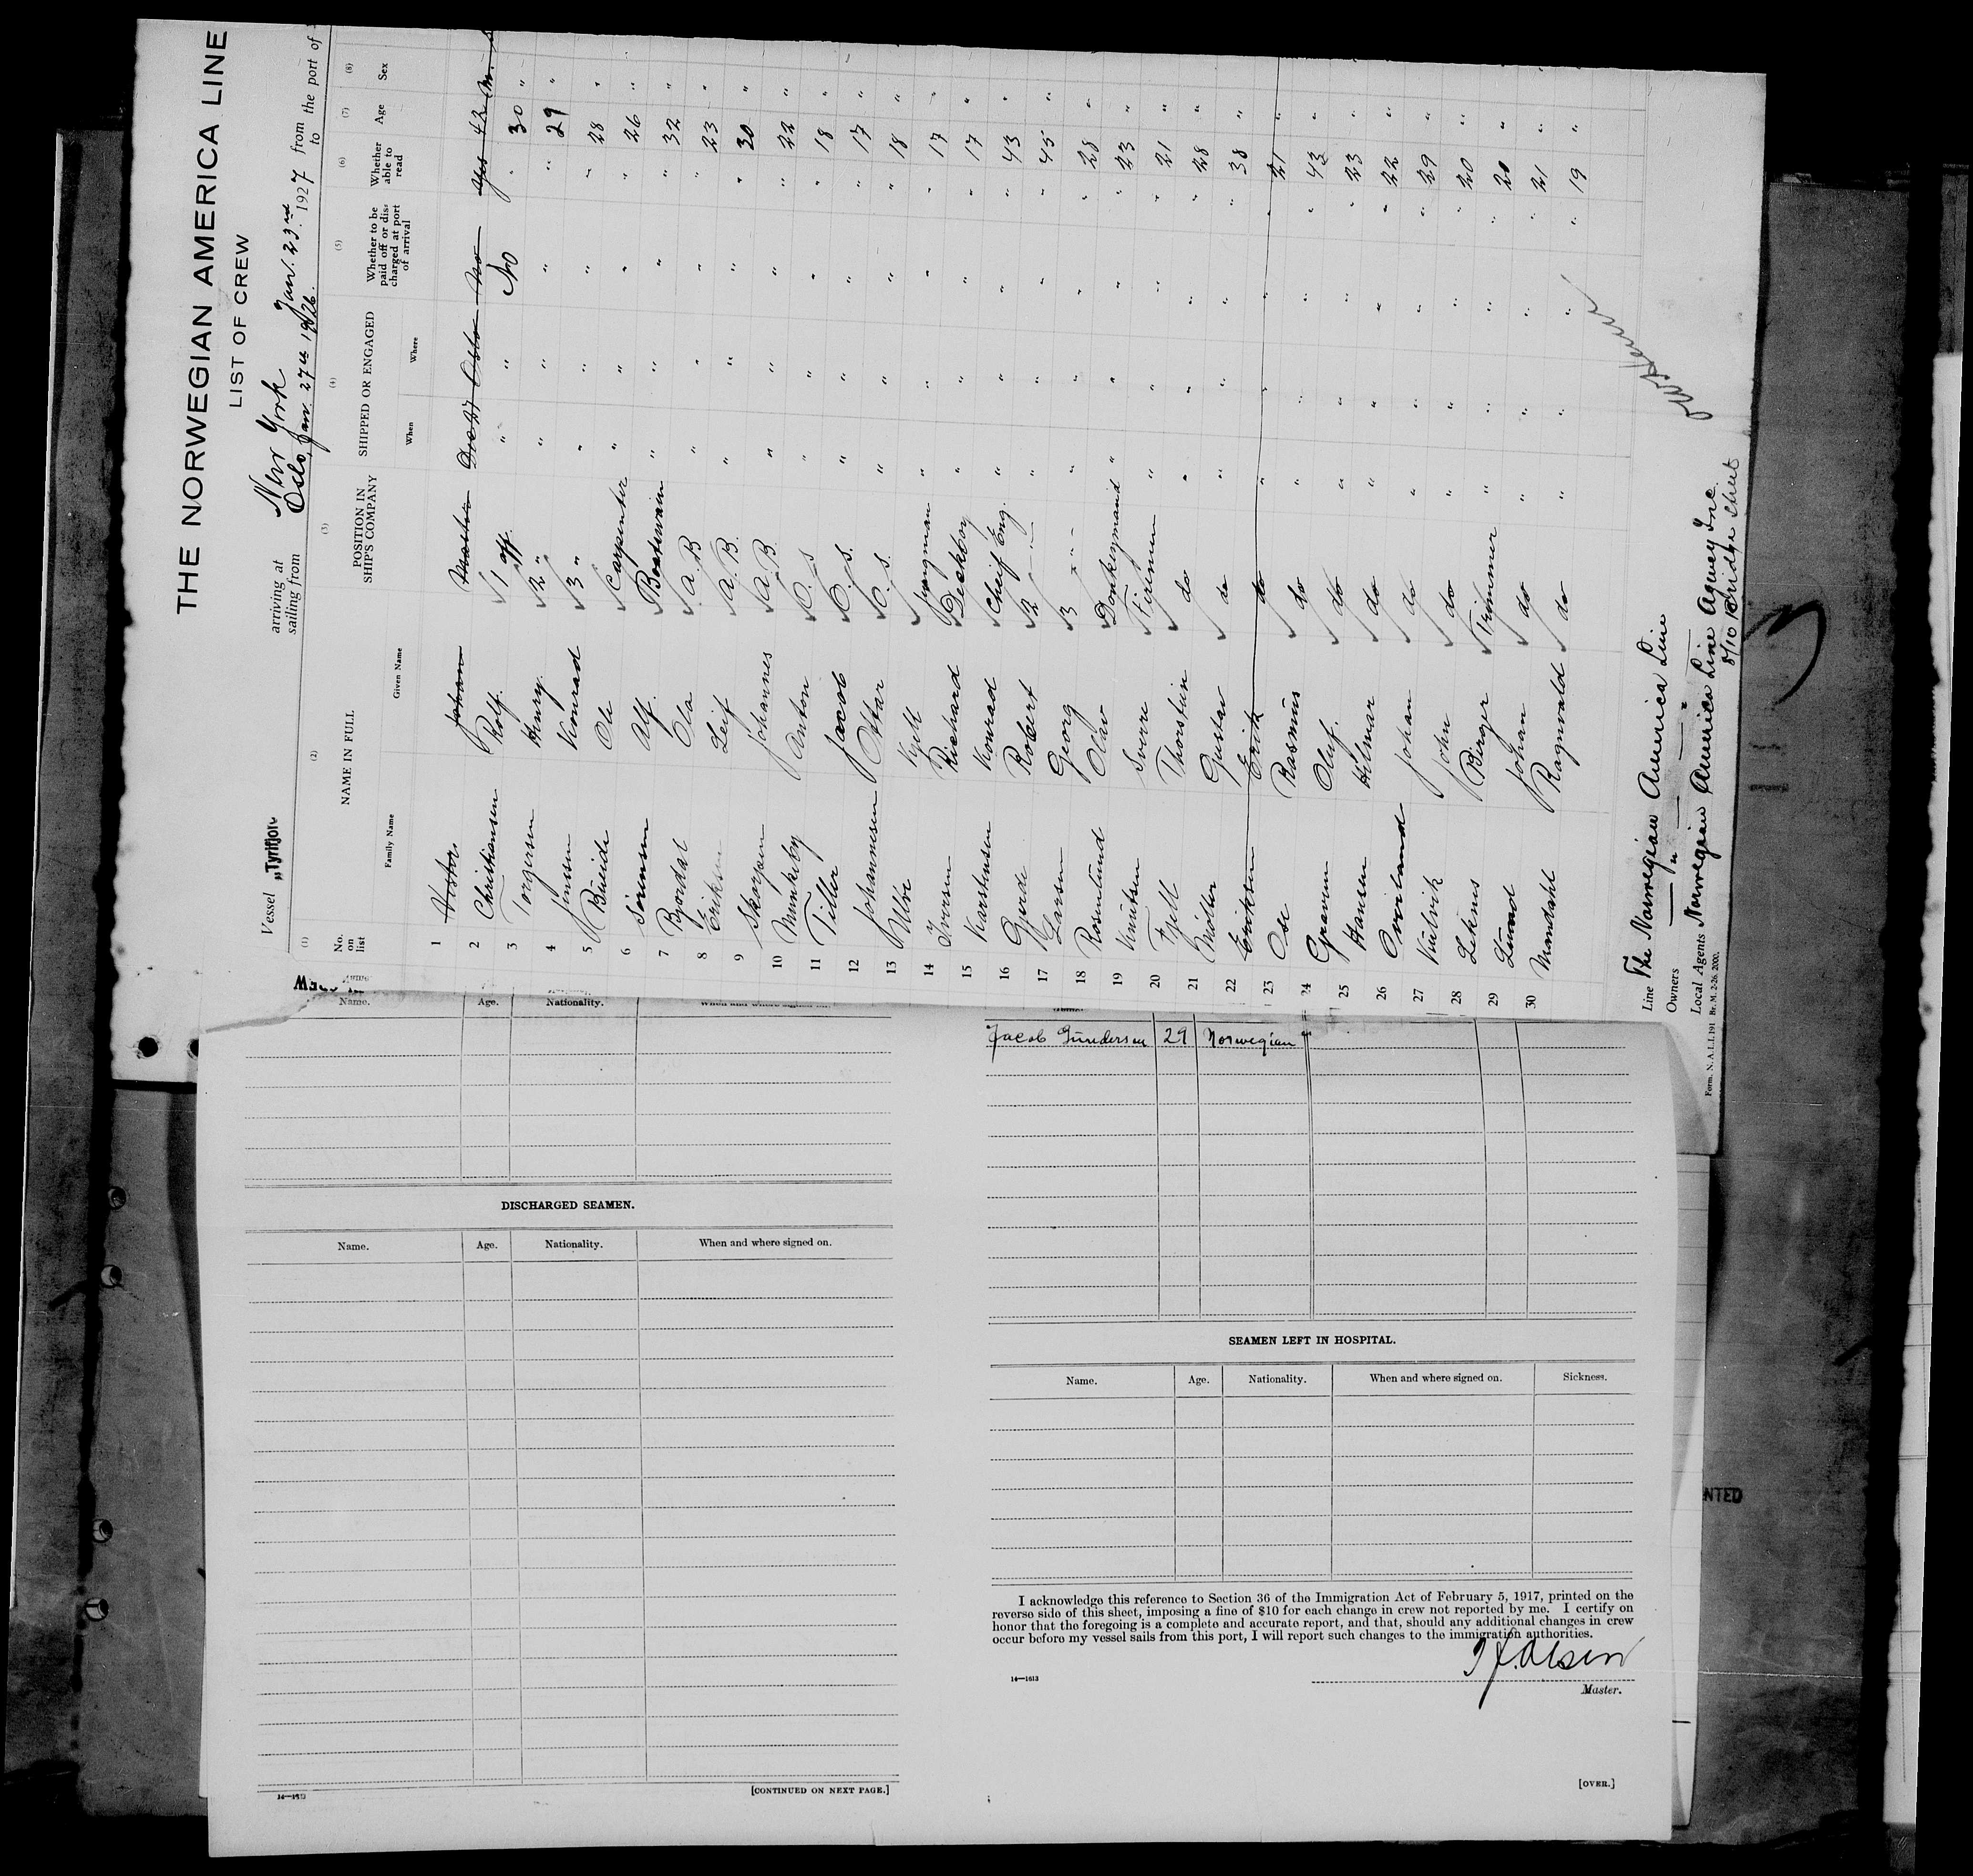 THE NORWEGIAN AMERICA LINE
LIST OF CREW
Vessel „Tyrifjord" arriving at New York Jan. 23rd 1927 from the port of
sailing from Oslo, Jan. 27th 1926. to
(1) (2) (3) (4) (5) (6) (7) (8)
No. on list NAME IN FULL POSITION IN SHIP'S COMPANY SHIPPED OR ENGAGED Whether to be paid off or discharged at port of arrival Whether able to read Age Sex
Family Name Given Name When Where
1 Johan Master Dec 27 Oslo No Yes 42 M.
2 Christiansen Rolf. 1 off. " " No " 30 "
3 Torgersen Henry. 2 " " " " " 29 "
4 Jenssen Konrad 3 " " " " " 28 "
5 Ole Carpenter " " " " 26 "
6 Sörensen Alf. Boatswain " " " " 32 "
7 Bjordal Ola A.B " " " " 23 "
8 Eriksen Leif A.B. " " " " 30 "
9 Skarpen Johannes A.B. " " " " 22 "
10 Munkeby Anton O. S " " " " 18 "
11 Tiller Jacob O. S. " " " " 17 "
12 Johannesen Ottar O. S. " " " " 18 "
13 Kjell Jungman " " " " 17 "
14 Iversen Richard Deckboy " " " " 17 "
15 Karstensen Konrad Cheif Eng. " " " " 43 "
16 Gjerde Robert 2 " " " " " " 45 "
17 Larsen Georg 3 " " " " " " 28 "
18 Rosenlund Olav Donkeymand " " " " 23 "
19 Knutsen Sverre Fireman " " " " 21 "
20 Fjell Thorstein do " " " " 28 "
21 Möller Gustav do " " " " 38 "
22 Eriksen Erik do " " " " 21 "
23 Ose Rasmus do " " " " 43 "
24 Graven Oluf. do " " " " 23 "
25 Hansen Hilmar do " " " " 22 "
26 Overland Johan do " " " " 29 "
27 Kulvik John do " " " " 20 "
28 Lekens Birger Trimmer " " " " 20 "
29 Lund Johan do " " " " 21 "
30 Mandahl Ragnvald do " " " " 19 "
Line The Norwegian America Line
Owners — " — " —
Local Agents Norwegian America Line Agency Inc.
8/10 Bridge Street
Form. N. A. L. I. 191 Br. M. 2-26. 2000.
Name. Age. Nationality. When and where signed on.
Jacob Gundersen 29 Norwegian
DISCHARGED SEAMEN.
Name. Age. Nationality. When and where signed on.
[CONTINUED ON NEXT PAGE.]
SEAMEN LEFT IN HOSPITAL.
Name. Age. Nationality. When and where signed on. Sickness.
I acknowledge this reference to Section 36 of the Immigration Act of February 5, 1917, printed on the
reverse side of this sheet, imposing a fine of $10 for each change in crew not reported by me. I certify on
honor that the foregoing is a complete and accurate report, and that, should any additional changes in crew
occur before my vessel sails from this port, I will report such changes to the immigration authorities.
14—1613
Master.
[OVER.]
NTED